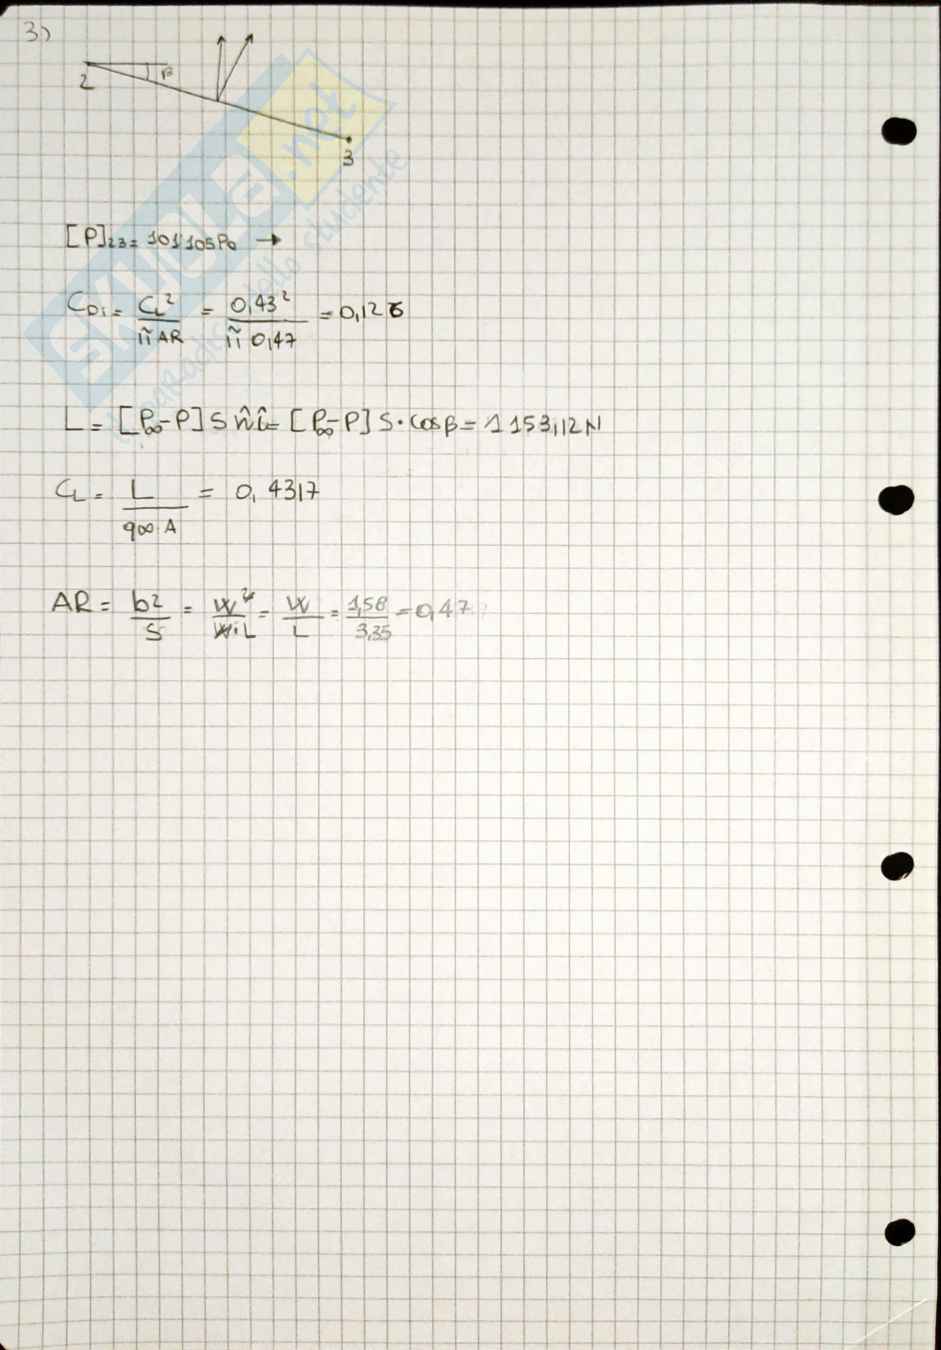 3)
2
β
3
[P]23 = 101'105 Pa →
CDi = CL² / π̃ AR = 0,43² / π̃ 0,47 = 0,126
L = [P∞-P] S n̂ î = [P∞-P] S · cosβ = 1 153,12 N
CL = L / q∞ · A = 0,4317
AR = b² / S = W² / W·L = W / L = 1,58 / 3,35 = 0,47
SKUOLA.net
il paradiso dello studente